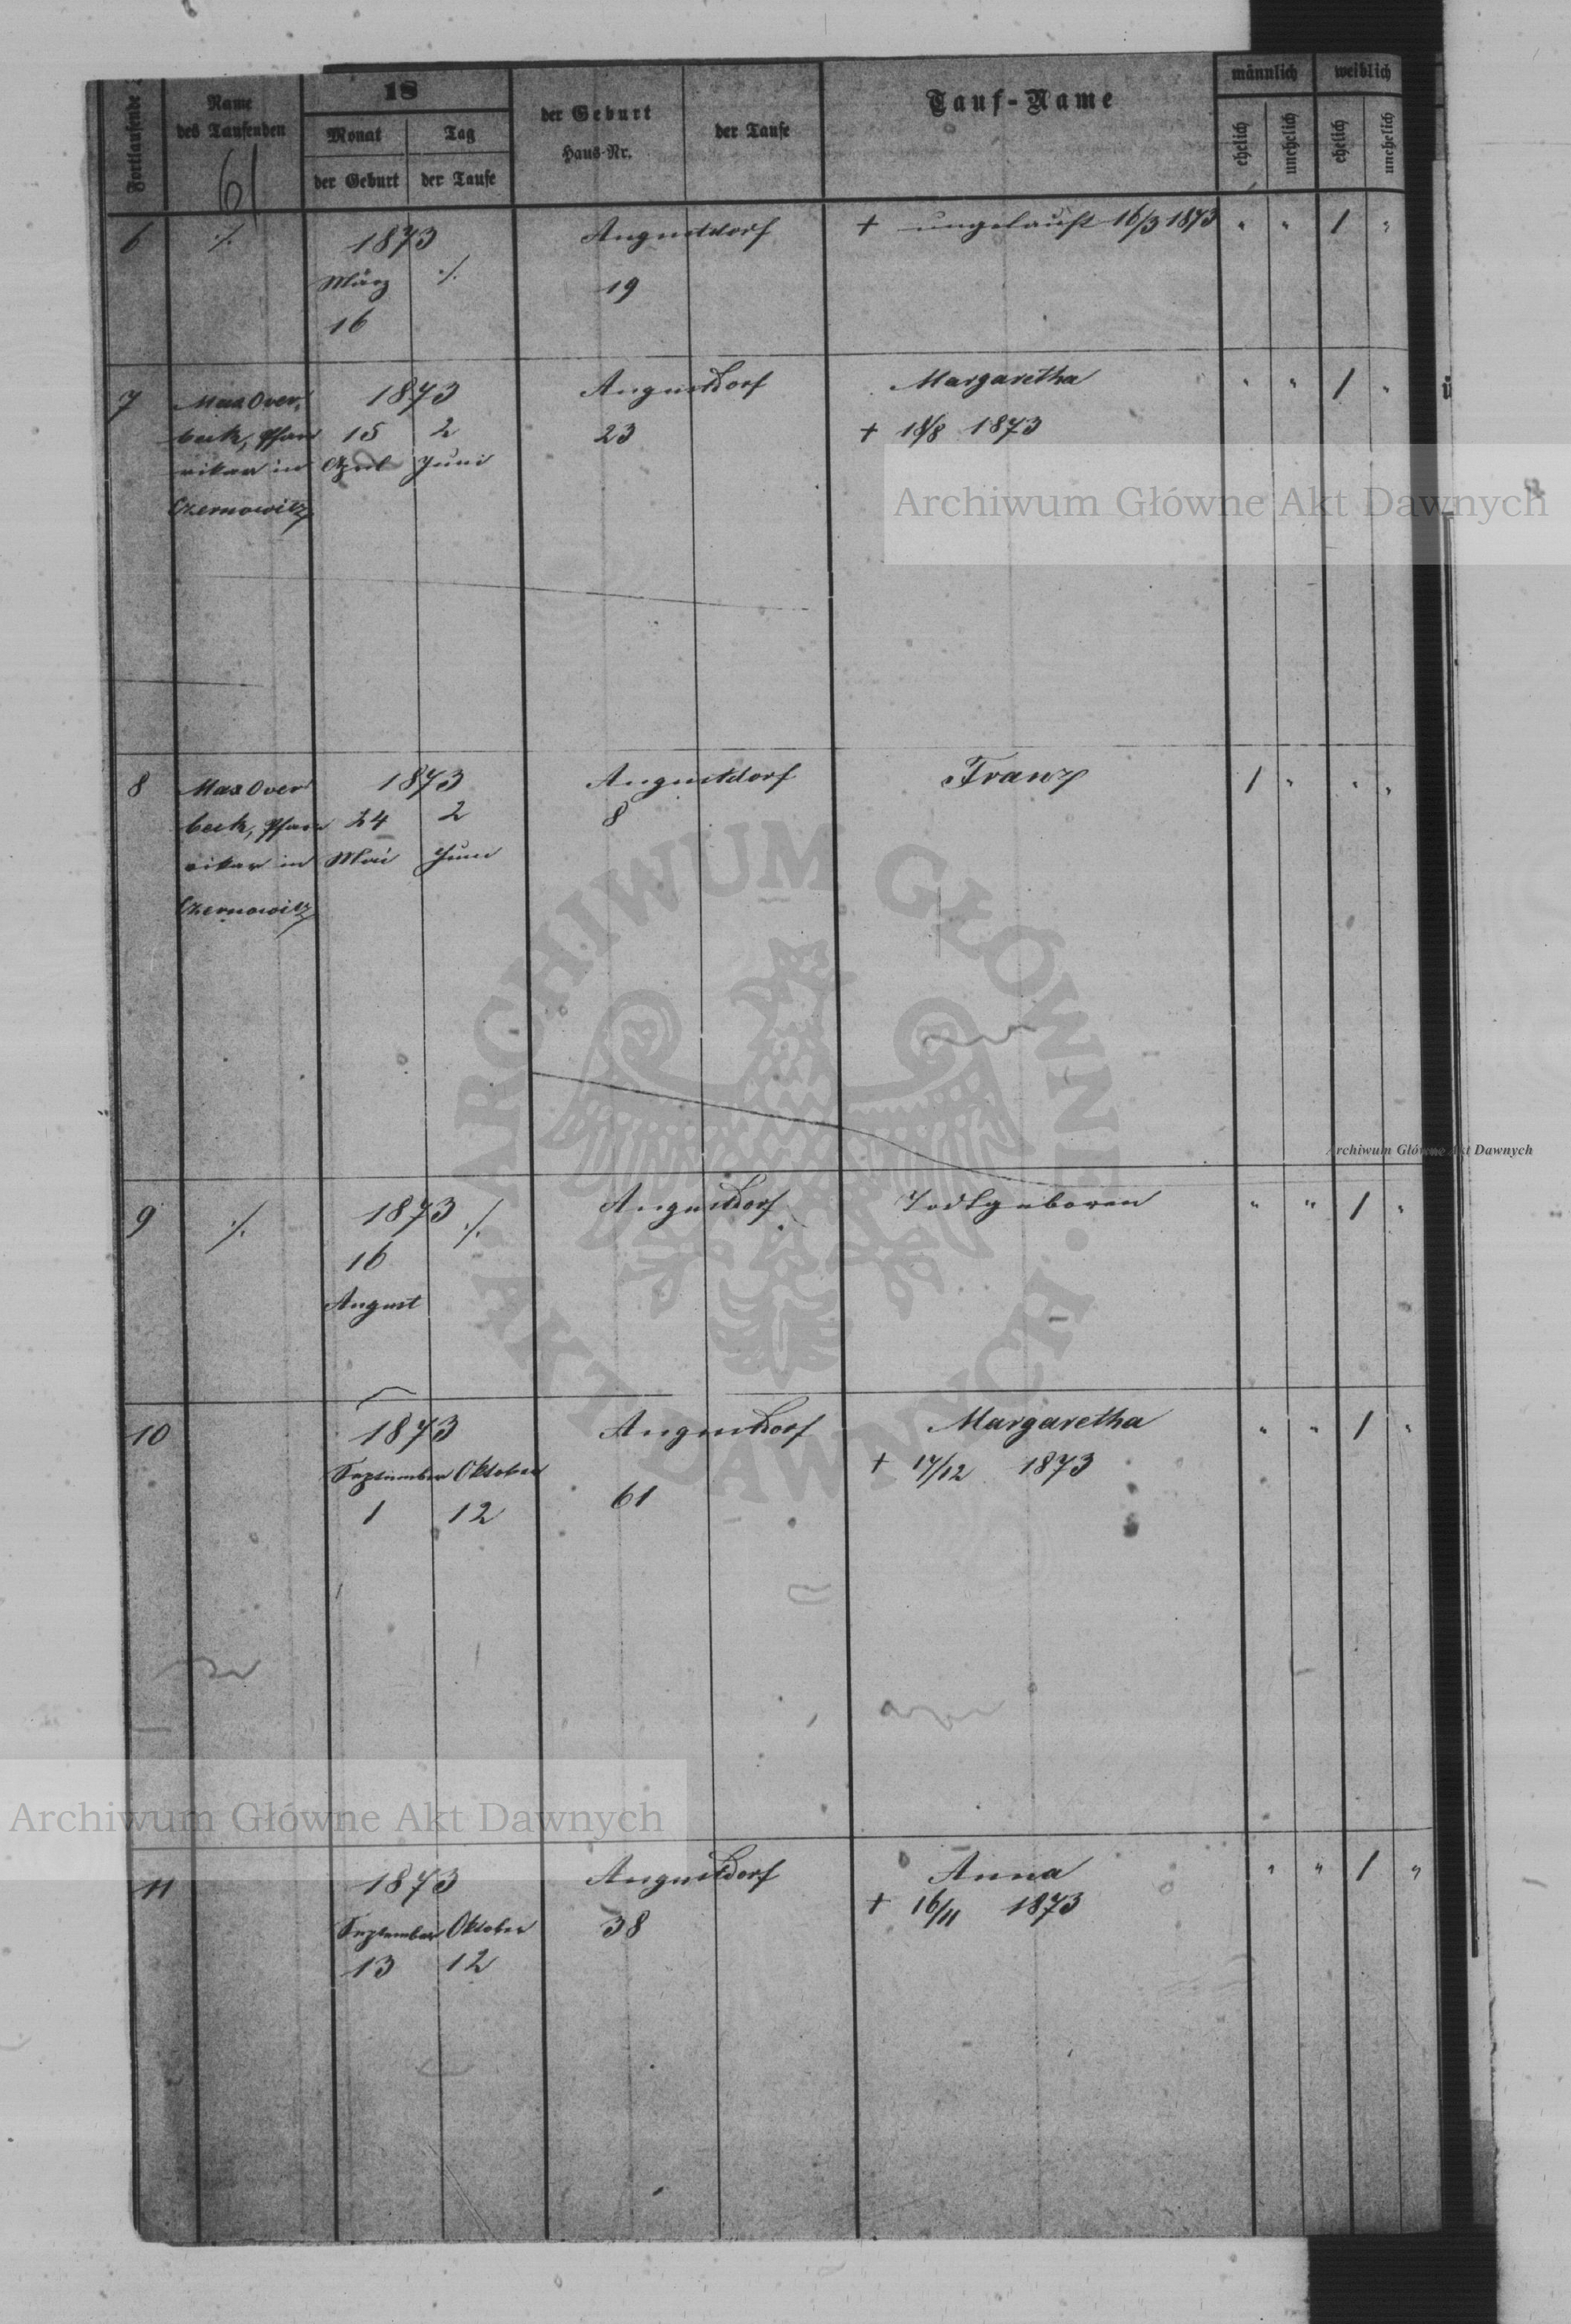 Fortlaufende
Name
des Taufenden
61
18
Monat
Tag
der Geburt
der Taufe
der Geburt
Haus-Nr.
der Taufe
Tauf-Name
männlich
weiblich
ehelich
unehelich
ehelich
unehelich
6 ./. 1873 Augustdorf + ungetauft 16/3 1873 " " 1 "
März ./. 19
16
7 Max Over, 1873 Augustdorf Margaretha " " 1 "
beck, Pfarr 15 2 23 + 18/8 1873
vikar in April Juni
Czernowitz
8 Max Over 1873 Augustdorf Franz 1 " " "
beck, Pfarr 24 2 8
vikar in Mai Juni
Czernowitz
9 ./. 1873 ./. Augustdorf Todtgeboren " " 1 "
16
August
10 1873 Augustdorf Margaretha " " 1 "
September Oktober + 17/12 1873
1 12 61
11 1873 Augustdorf Anna " " 1 "
September Oktober 38 + 16/11 1873
13 12
Archiwum Główne Akt Dawnych
ARCHIWUM GŁÓWNE AKT DAWNYCH
Archiwum Główne Akt Dawnych
Archiwum Główne Akt Dawnych